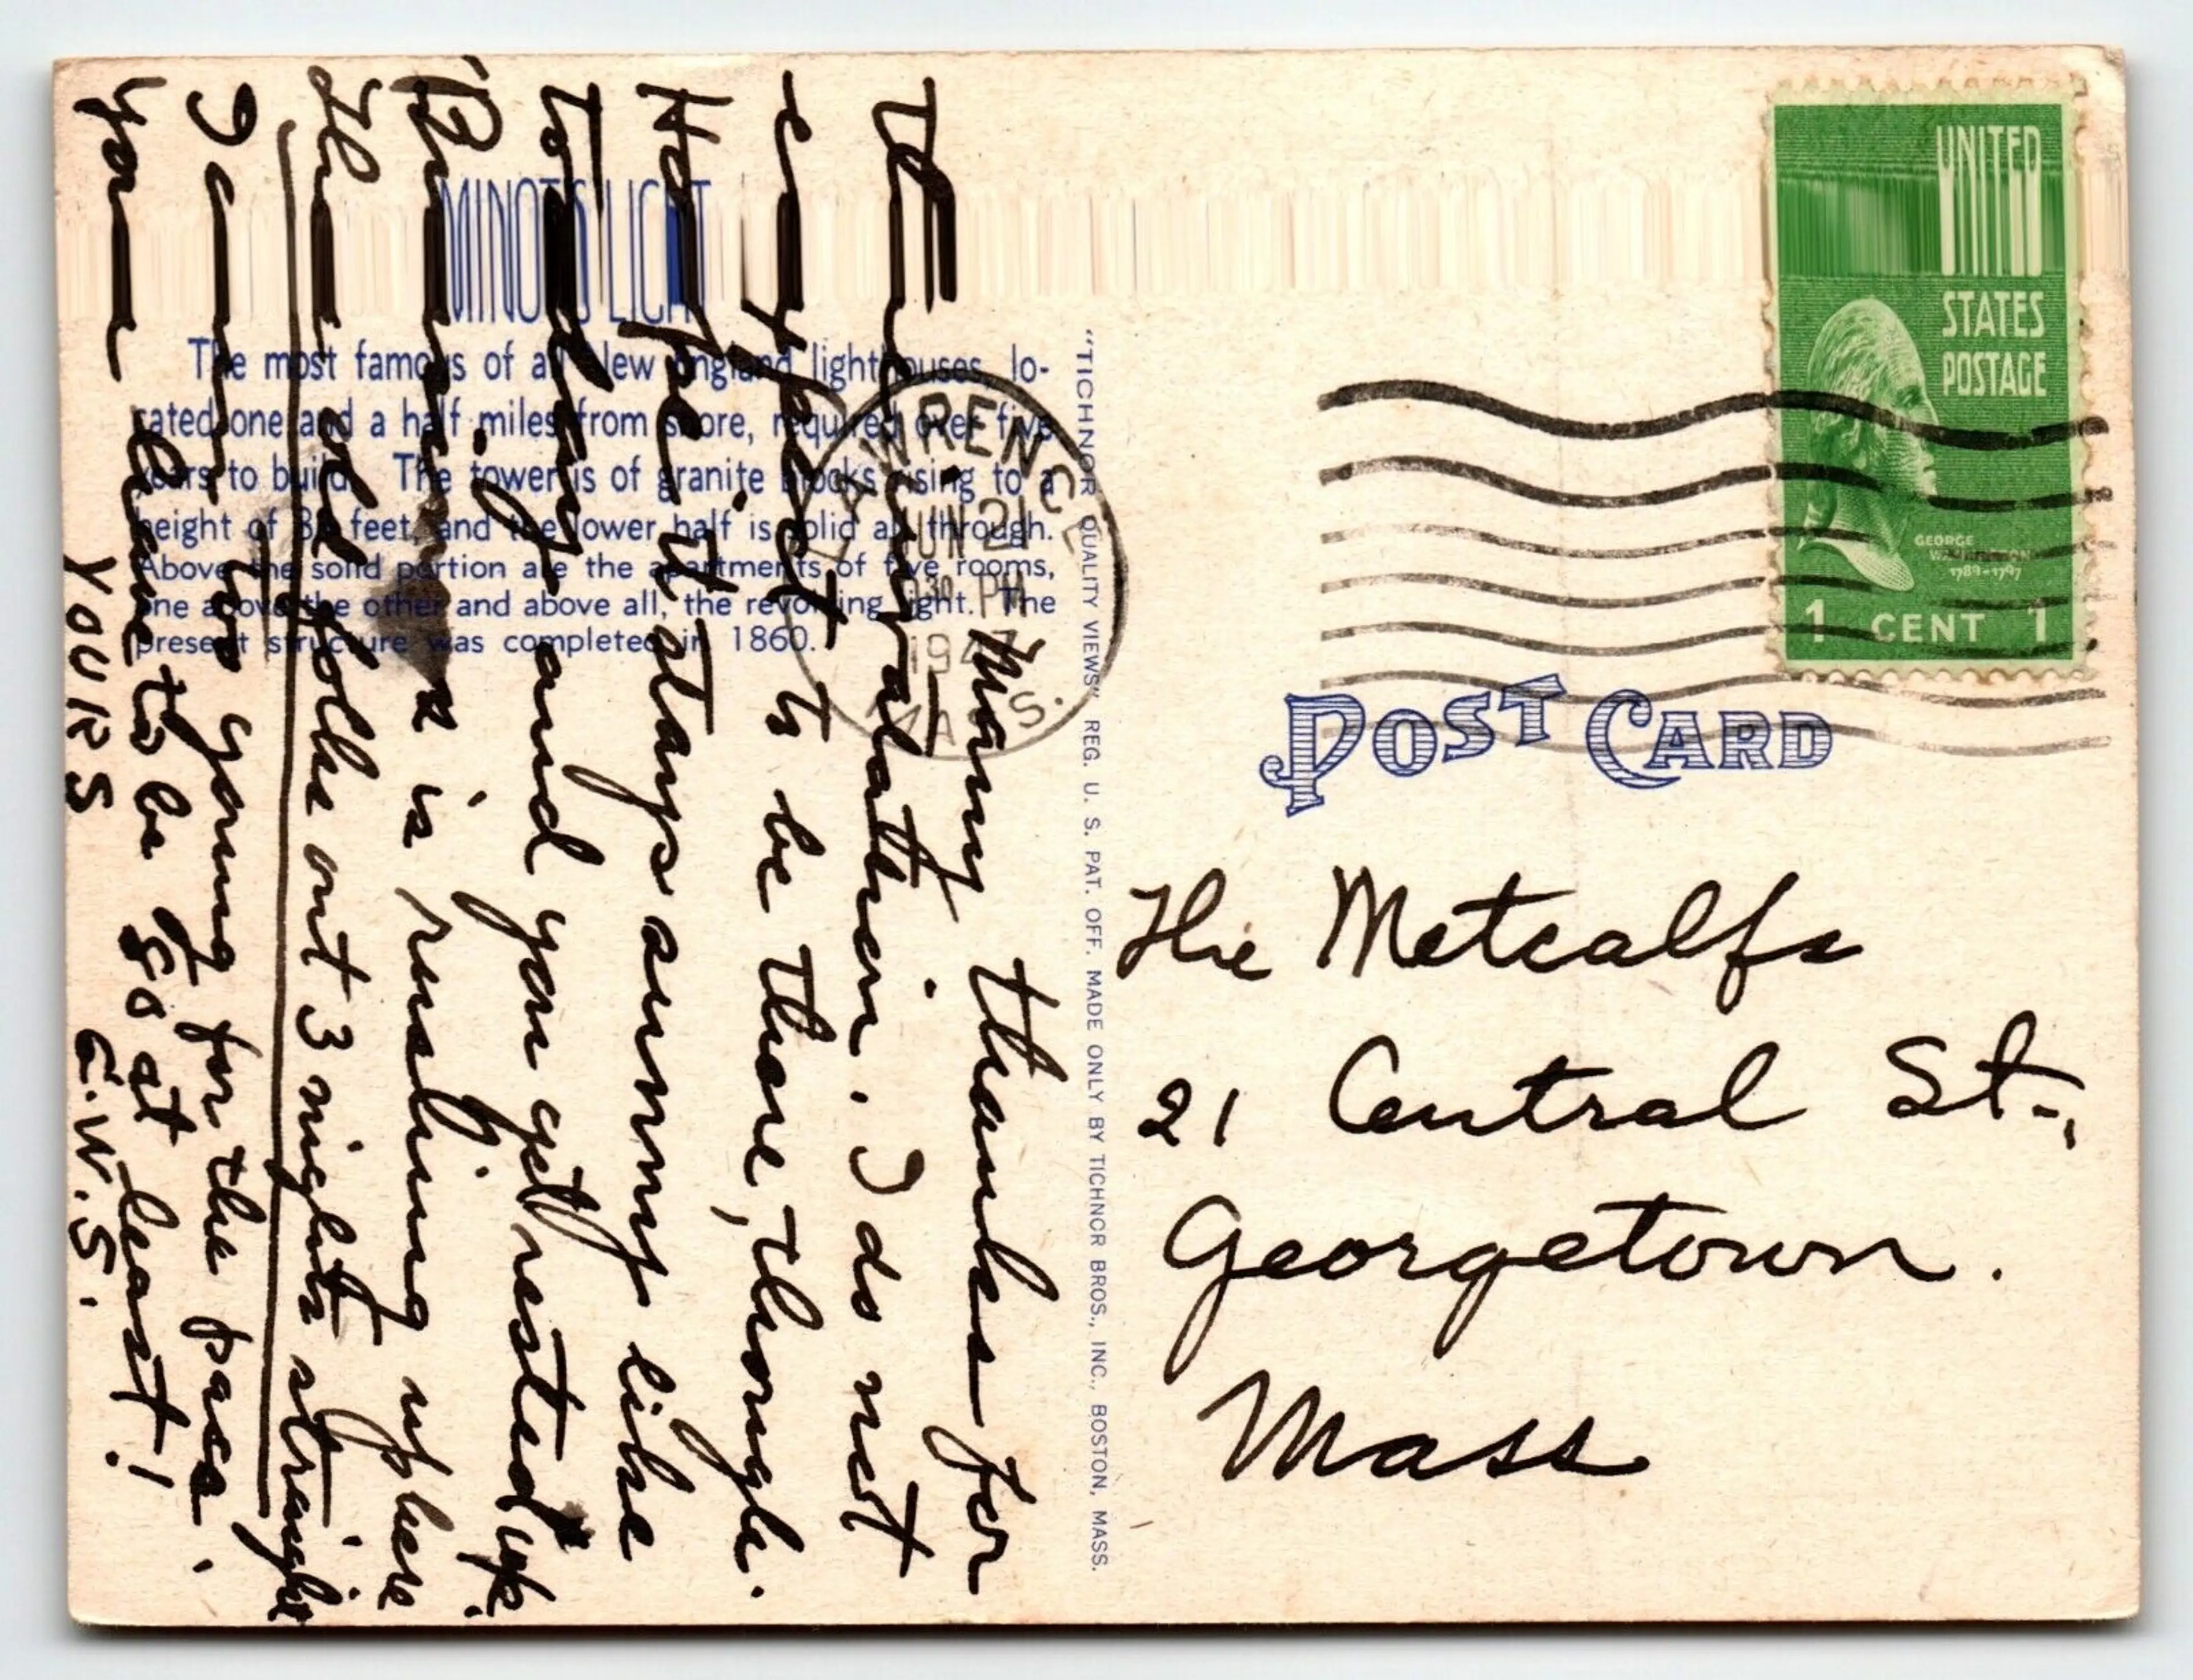 MINOT'S LIGHT
The most famous of all New England lighthouses, lo-
cated one and a half miles from shore, required over five
years to build. The tower is of granite blocks rising to a
height of feet, and the lower half is solid all through.
Above the solid portion are the apartments of five rooms,
one above the other and above all, the revolving light. The
present structure was completed in 1860.
"TICHNOR QUALITY VIEWS" REG. U. S. PAT. OFF. MADE ONLY BY TICHNOR BROS., INC., BOSTON, MASS.
LAWRENCE
JUN 21
30 PM
194
MASS.
UNITED
STATES
POSTAGE
GEORGE
WASHINGTON
1789-1797
1 CENT 1
POST CARD
The Metcalfs
21 Central St.,
Georgetown.
Mass
Many thanks for
The invitation. I do not
expect to be there, though.
Hope it stays sunny like
today and you get rested up.
is rushing up here
The old folks out 3 nights straight
I am too young for the pace.
You have to be 80 at least!
YOURS E.W.S.